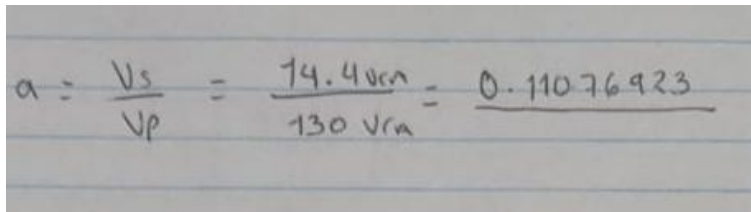 a = Vs/Vp = 14.4 Vca/130 Vca = 0.11076923